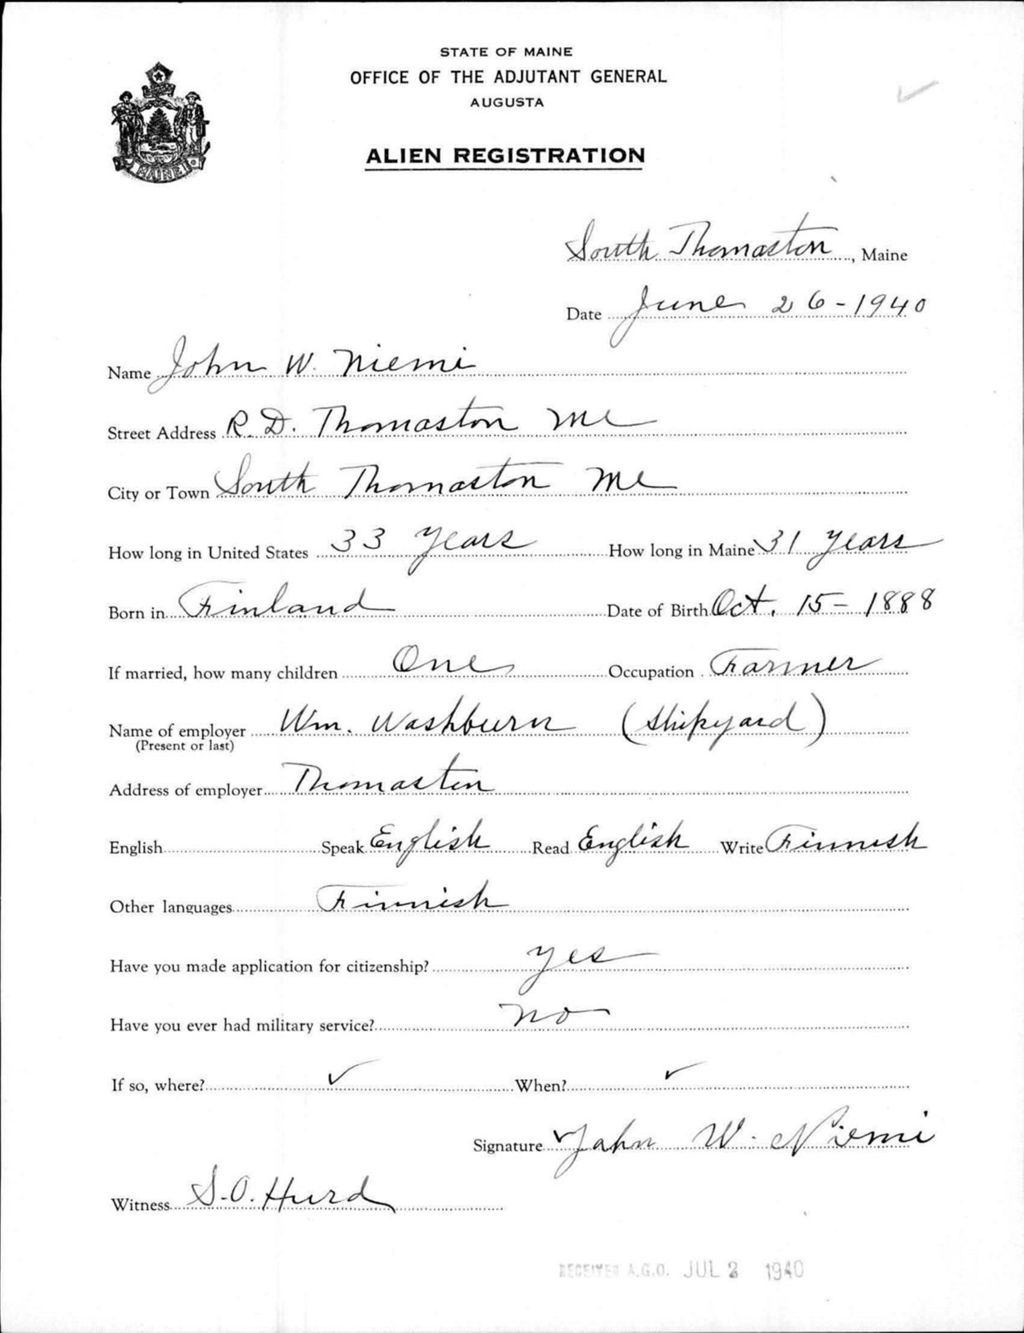 STATE OF MAINE
OFFICE OF THE ADJUTANT GENERAL
AUGUSTA
ALIEN REGISTRATION
MAINE
South Thomaston, Maine
Date June 26-1940
Name John W. Niemi
Street Address R.D. Thomaston Me
City or Town South Thomaston Me
How long in United States 33 years How long in Maine 31 years
Born in Finland Date of Birth Oct. 15-1888
If married, how many children One Occupation Farmer
Name of employer Wm. Washburn (Shipyard)
(Present or last)
Address of employer Thomaston
English Speak English Read English Write Finnish
Other languages Finnish
Have you made application for citizenship? yes
Have you ever had military service? no
If so, where? ✓ When? ✓
Signature John W. Niemi
Witness S.O. Hurd
RECEIVED A.G.O. JUL 2 1940